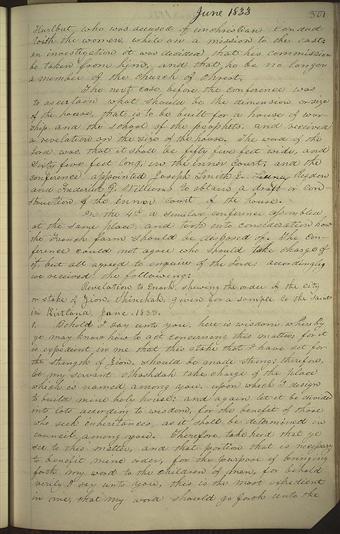 June 1833
301
Hurlbut, who was accused of unchristian conduct
with the women, while on a mission to the east.
on investigation it was decided that his commission
be taken from him, and that he be no longer
a member of the church of Christ.
The next case before the conference was
to ascertain what should be the dimension or size
of the house, that is to be built for a house of wor-
ship and the school of the prophets. and received
a revelation on the size of the house. The word of the
Lord was that it shall be fifty five feet wide, and
sixty five feet long, in the inner court; and the
conference appointed Joseph Smith Sidney Rigdon
and Frederick G. Williams to obtain a draft or con-
struction of the inner court of the house.
On the 4th a similar conference assembled
at the same place, and took into consideration how
the French farm should be disposed of. The con-
ference could not agree who should take charge of
it, but all agreed to enquire of the Lord accordingly
we received the following:
Revelation to Enoch, shewing the order of the city
or stake of Zion, Shinehah, given for a sample to the saints
in Kirtland, June, 1833.
1. Behold I say unto you, here is wisdom whereby
ye may know how to act concerning this matter, for it
is expedient in me that this stake that I have set for
the strength of Zion, should be made strong; therefore,
let my servant Ahashdah take charge of the place
which is named among you, upon which I design
to build mine holy house: and again let it be divided
into lots according to wisdom, for the benefit of those
who seek inheritances, as it shall be determined in
council among you. Therefore, take heed that ye
see to this matter, and that portion that is necessary
to benefit mine order, for the purpose of bringing
forth my word to the children of men, for behold
verily I say unto you, this is the most expedient
in me, that my word should go forth unto the